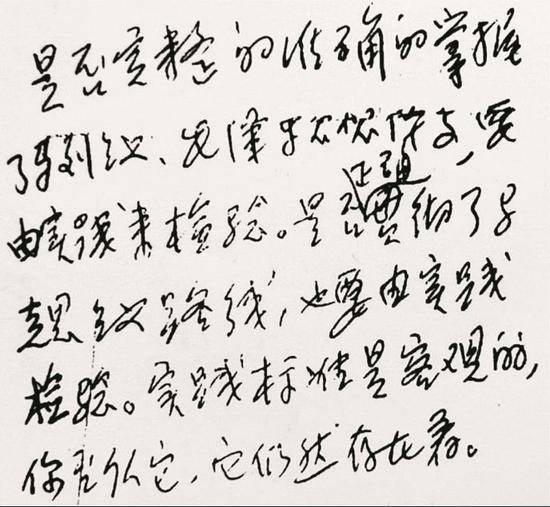 是否完整的准确的掌握
了马列主义、毛泽东思想体系,要
由实践来检验。是否正确贯彻了马
克思主义路线,也要由实践
检验。实践标准是客观的,
你否认它,它仍然存在着。